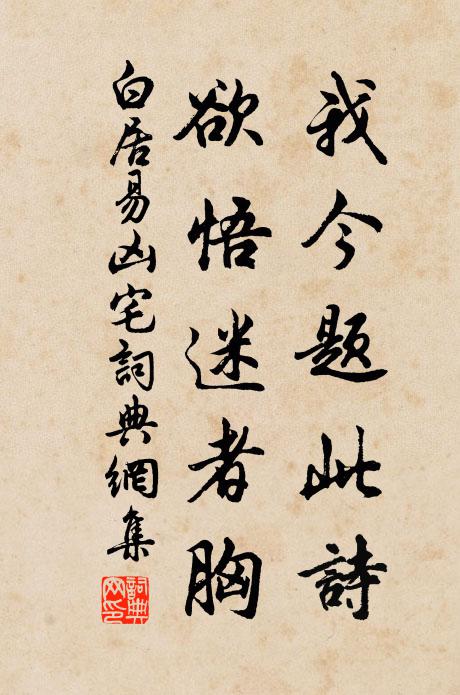 我今題此詩
欲悟迷者胸
白居易凶宅詞典網集
詞典
网印